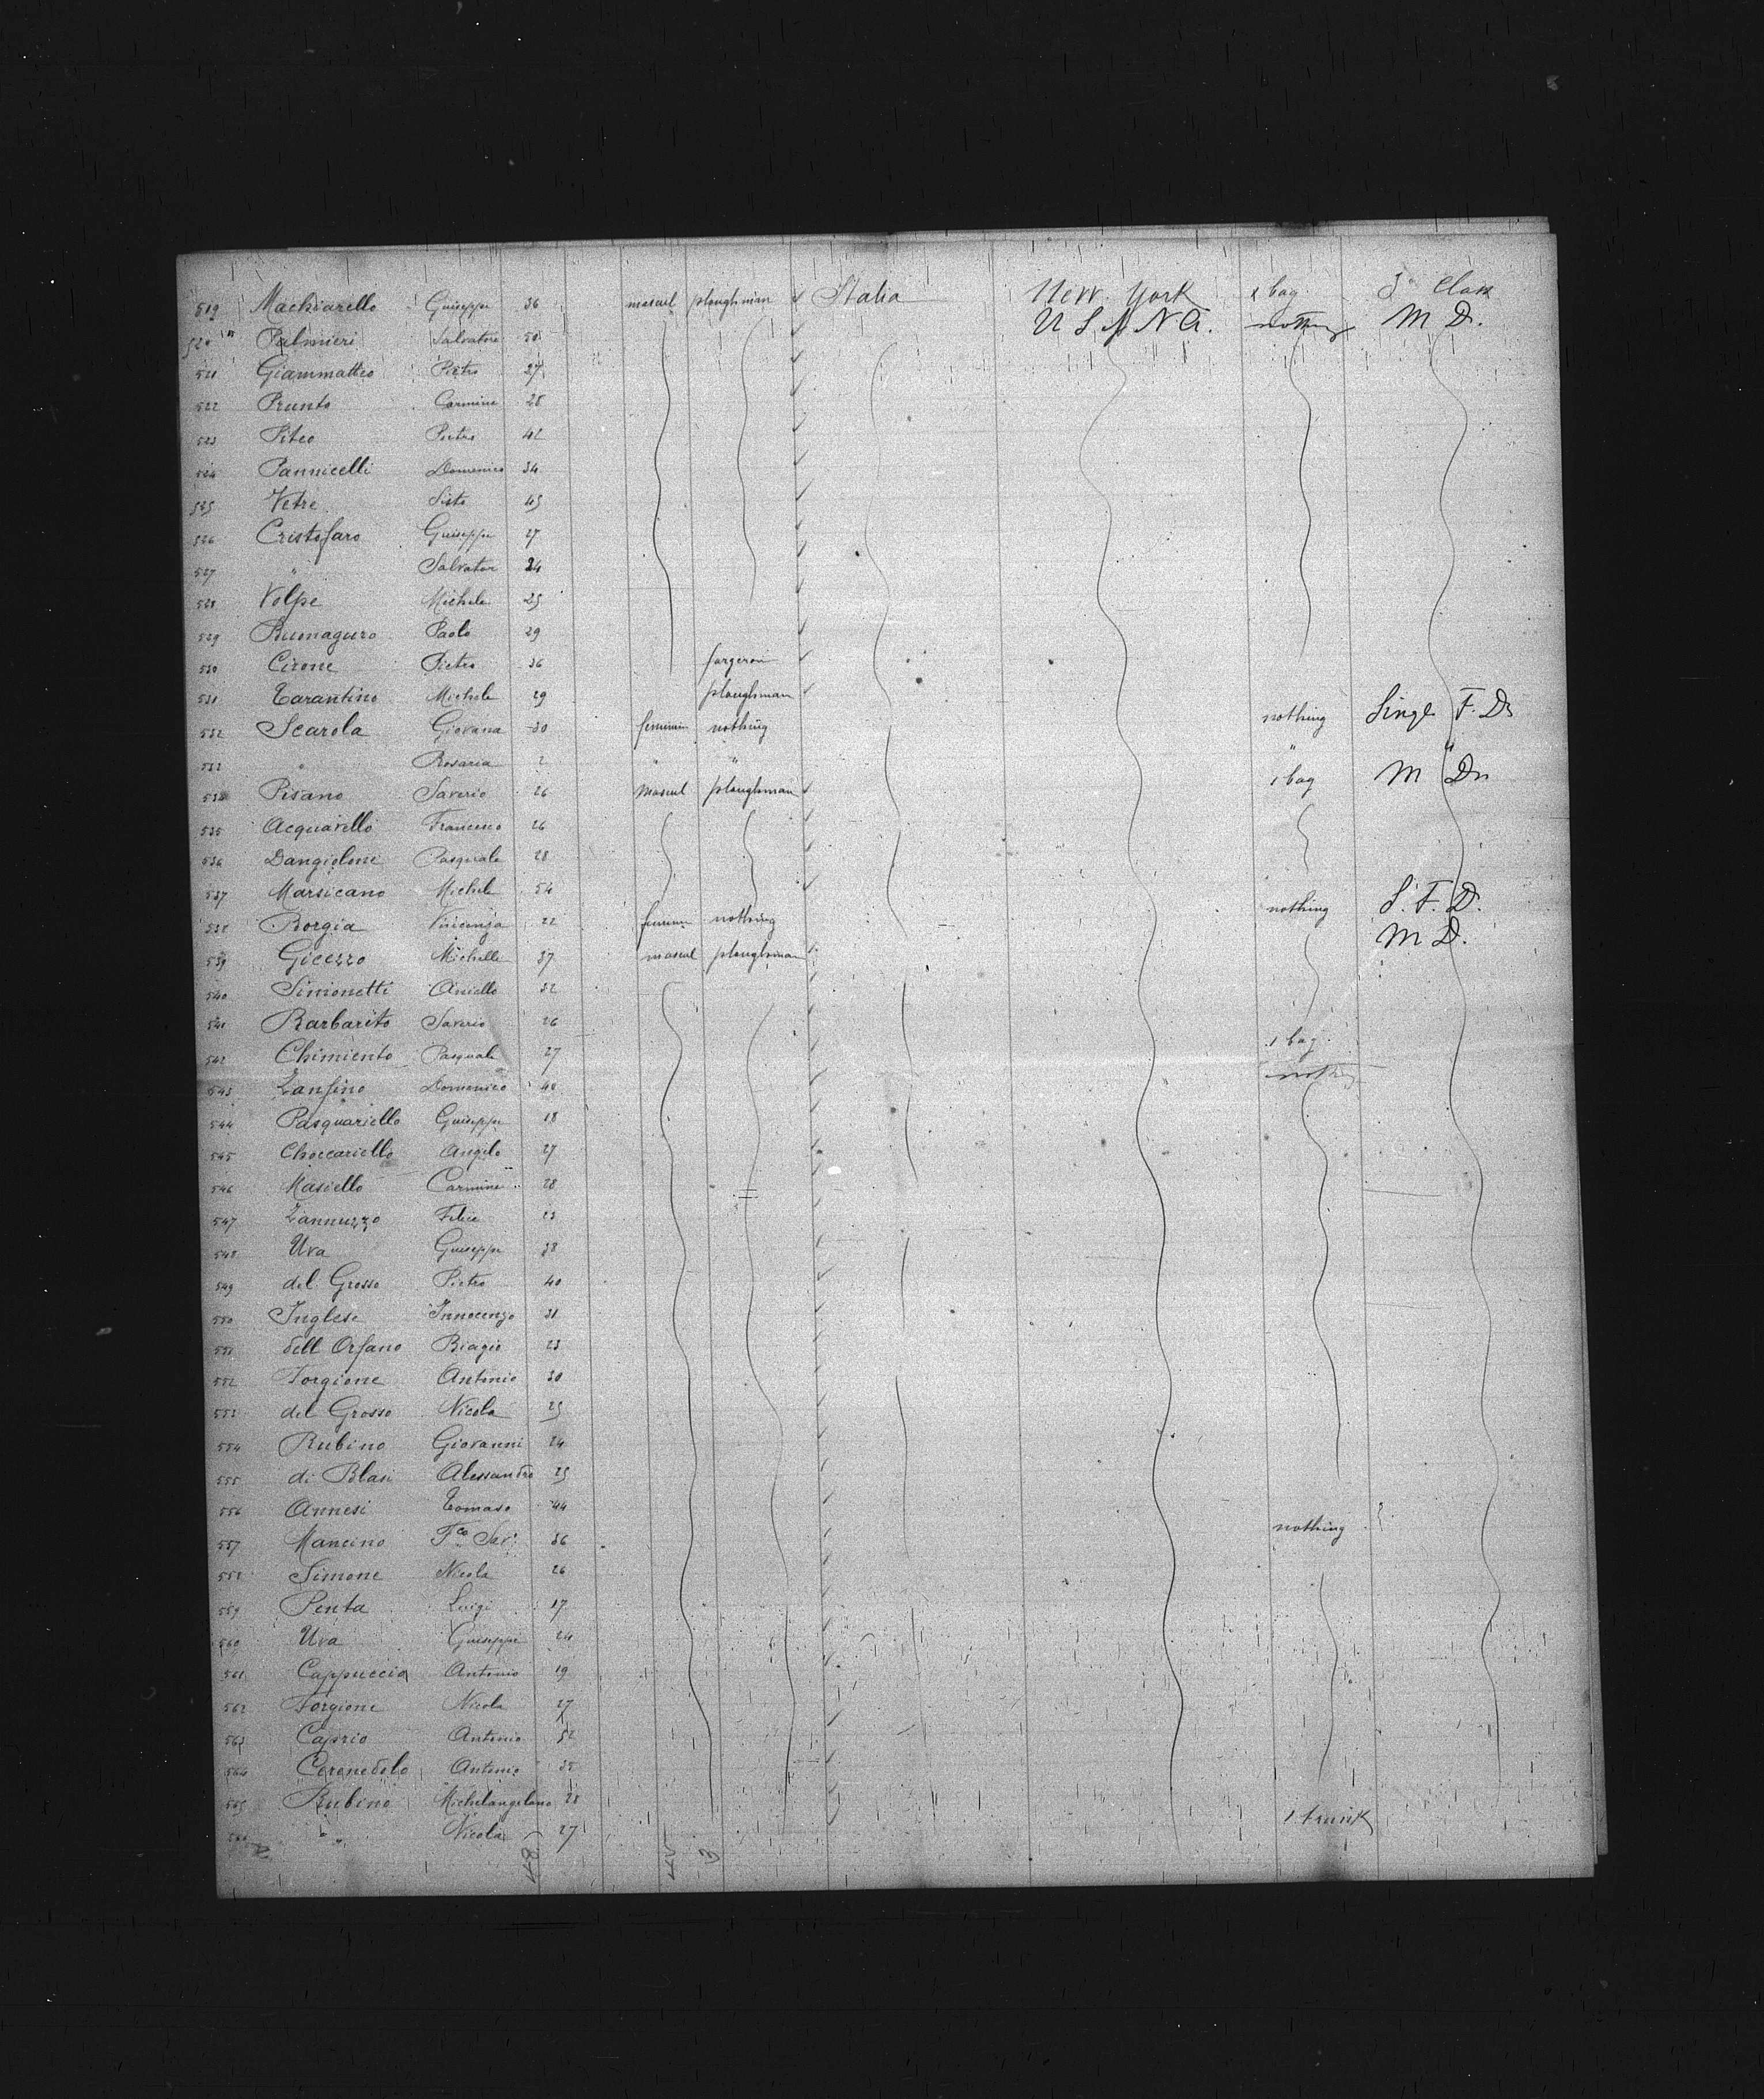 519 Machiarello Giuseppe 36 mascul ploughman Italia New York 1 bag 3e Class
520 " Palmieri Salvatore 50 U S N A. nothing M D.
521 Giammatteo Pietro 27
522 Prunto Carmine 28
523 Piteo Pietro 42
524 Pannicelli Domenico 34
525 Vetre Sisto 45
526 Cristofaro Giuseppe 27
527 " Salvator 24
528 Volpe Michele 25
529 Rumaguro Paolo 29
530 Cirone Pietro 36 forgeron
531 Tarantino Michele 29 ploughman
532 Scarola Giovana 30 feminin nothing nothing Singl F. D
533 " Rosaria 2 " " " "
534 Pisano Saverio 26 mascul ploughman 1 bag M D
535 Acquarello Francesco 26
536 Dangiolone Pasquale 28
537 Marsicano Michele 54
538 Borgia Vincenza 22 femin nothing nothing S. F. D.
539 Gicezzo Michelle 37 mascul ploughman M D.
540 Simonetti Aniello 32
541 Barbarito Saverio 26
542 Chimiento Pasquale 27 1 bag
543 Zanfino Domenico 40 nothing
544 Pasquariello Giuseppe 18
545 Choccariello Angelo 27
546 Masiello Carmine 28
547 Zannuzzo Felice 23
548 Uva Giuseppe 38
549 del Grosso Pietro 40
550 Inglese Innocenzo 31
551 dell Orfano Biagio 23
552 Forgione Antonio 30
553 del Grosso Nicola 25
554 Rubino Giovanni 24
555 di Blasi Alessandro 25
556 Annesi Tomaso 44
557 Mancino Fco Sav. 36 nothing
558 Simone Nicola 26
559 Penta Luigi 17
560 Uva Giuseppe 24
561 Cappuccio Antonio 19
562 Forgione Nicola 27
563 Caprio Antonio 52
564 Antonio 35
565 Rubino Michelangelano 28
566 " Nicola 27 1 trunk